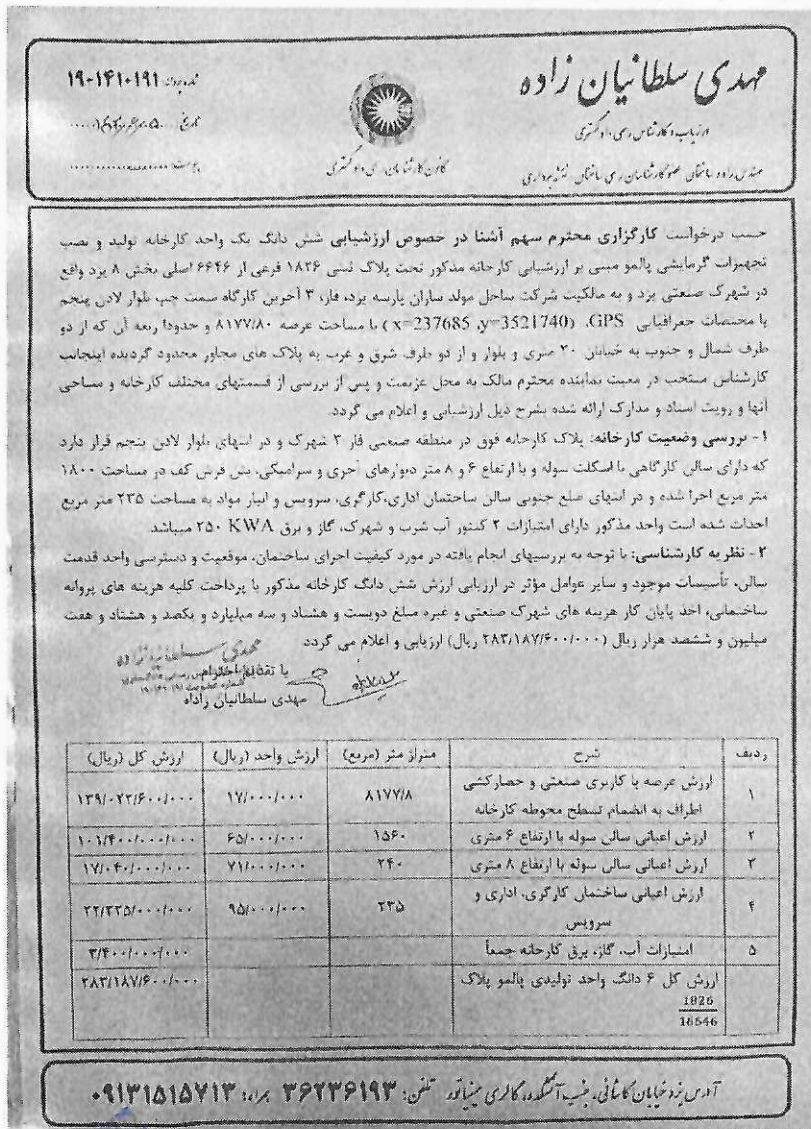 مهدی سلطانیان زاده
ارزیاب و کارشناس رسمی دادگستری
کانون کارشناسان رسمی دادگستری
۱۹-۱۴۱۰۱۹۱
تاریخ
پیوست
حسب درخواست کارگزاری محترم سهم آشنا در خصوص ارزشیابی شش دانگ یک واحد کارخانه تولید و نصب
تجهیزات گرمایشی پالمو مبنی بر ارزشیابی کارخانه مذکور تحت پلاک ثبتی ۱۸۲۶ فرعی از ۶۶۴۶ اصلی بخش ۸ یزد واقع
در شهرک صنعتی یزد و به مالکیت شرکت ساحل مولد سازان پارسه یزد، فاز، ۳ آخرین کارگاه سمت چپ بلوار لادن پنجم
با مختصات جغرافیایی GPS، (x=237685 ,y=3521740) با مساحت عرصه ۸۱۷۷/۸۰ و حدودا ربعه آن که از دو
طرف شمال و جنوب به خیابان ۲۰ متری و بلوار و از دو طرف شرق و غرب به پلاک های مجاور محدود گردیده اینجانب
کارشناس منتخب در معیت نماینده محترم مالک به محل عزیمت و پس از بررسی از قسمتهای مختلف کارخانه و مساحی
آنها و رویت اسناد و مدارک ارائه شده بشرح ذیل ارزشیابی و اعلام می گردد.
۱- بررسی وضعیت کارخانه: پلاک کارخانه فوق در منطقه صنعتی فاز ۳ شهرک و در انتهای بلوار لادن پنجم قرار دارد
که دارای سالن کارگاهی با اسکلت سوله و با ارتفاع ۶ و ۸ متر دیوارهای آجری و سرامیکی، بتن فرش کف در مساحت ۱۸۰۰
متر مربع اجرا شده و در انتهای ضلع جنوبی سالن ساختمان اداری،کارگری، سرویس و انبار مواد به مساحت ۲۳۵ متر مربع
احداث شده است واحد مذکور دارای امتیازات ۲ کنتور آب شرب و شهرک، گاز و برق ۲۵۰ KWA میباشد.
۲- نظریه کارشناسی: با توجه به بررسیهای انجام یافته در مورد کیفیت اجرای ساختمان، موقعیت و دسترسی واحد قدمت
سالن، تأسیسات موجود و سایر عوامل مؤثر در ارزیابی ارزش شش دانگ کارخانه مذکور با پرداخت کلیه هزینه های پروانه
ساختمانی، اخذ پایان کار هزینه های شهرک صنعتی و غیره مبلغ دویست و هشتاد و سه میلیارد و یکصد و هشتاد و هفت
میلیون و ششصد هزار ریال (۲۸۳/۱۸۷/۶۰۰/۰۰۰ ریال) ارزیابی و اعلام می گردد
با تقدیم احترام
مهدی سلطانیان زاداه
ردیف شرح متراژ متر (مربع) ارزش واحد (ریال) ارزش کل (ریال)
۱ ارزش عرصه با کاربری صنعتی و حصارکشی اطراف به انضمام تسطح محوطه کارخانه ۸۱۷۷/۸ ۱۷/۰۰۰/۰۰۰ ۱۳۹/۰۲۲/۶۰۰/۰۰۰
۲ ارزش اعیانی سالن سوله با ارتفاع ۶ متری ۱۵۶۰ ۶۵/۰۰۰/۰۰۰ ۱۰۱/۴۰۰/۰۰۰/۰۰۰
۳ ارزش اعیانی سالن سوله با ارتفاع ۸ متری ۲۴۰ ۷۱/۰۰۰/۰۰۰ ۱۷/۰۴۰/۰۰۰/۰۰۰
۴ ارزش اعیانی ساختمان کارگری، اداری و سرویس ۲۳۵ ۹۵/۰۰۰/۰۰۰ ۲۲/۳۲۵/۰۰۰/۰۰۰
۵ امتیازات آب، گاز، برق کارخانه جمعاً ۳/۴۰۰/۰۰۰/۰۰۰
ارزش کل ۶ دانگ واحد تولیدی پالمو پلاک ۲۸۳/۱۸۷/۶۰۰/۰۰۰
1826
16646
آدرس: یزد خیابان کاشانی، جنب آتشکده، گالری مینیاتور تلفن: ۳۶۲۳۶۱۹۳ همراه: ۰۹۱۳۱۵۱۵۷۱۳